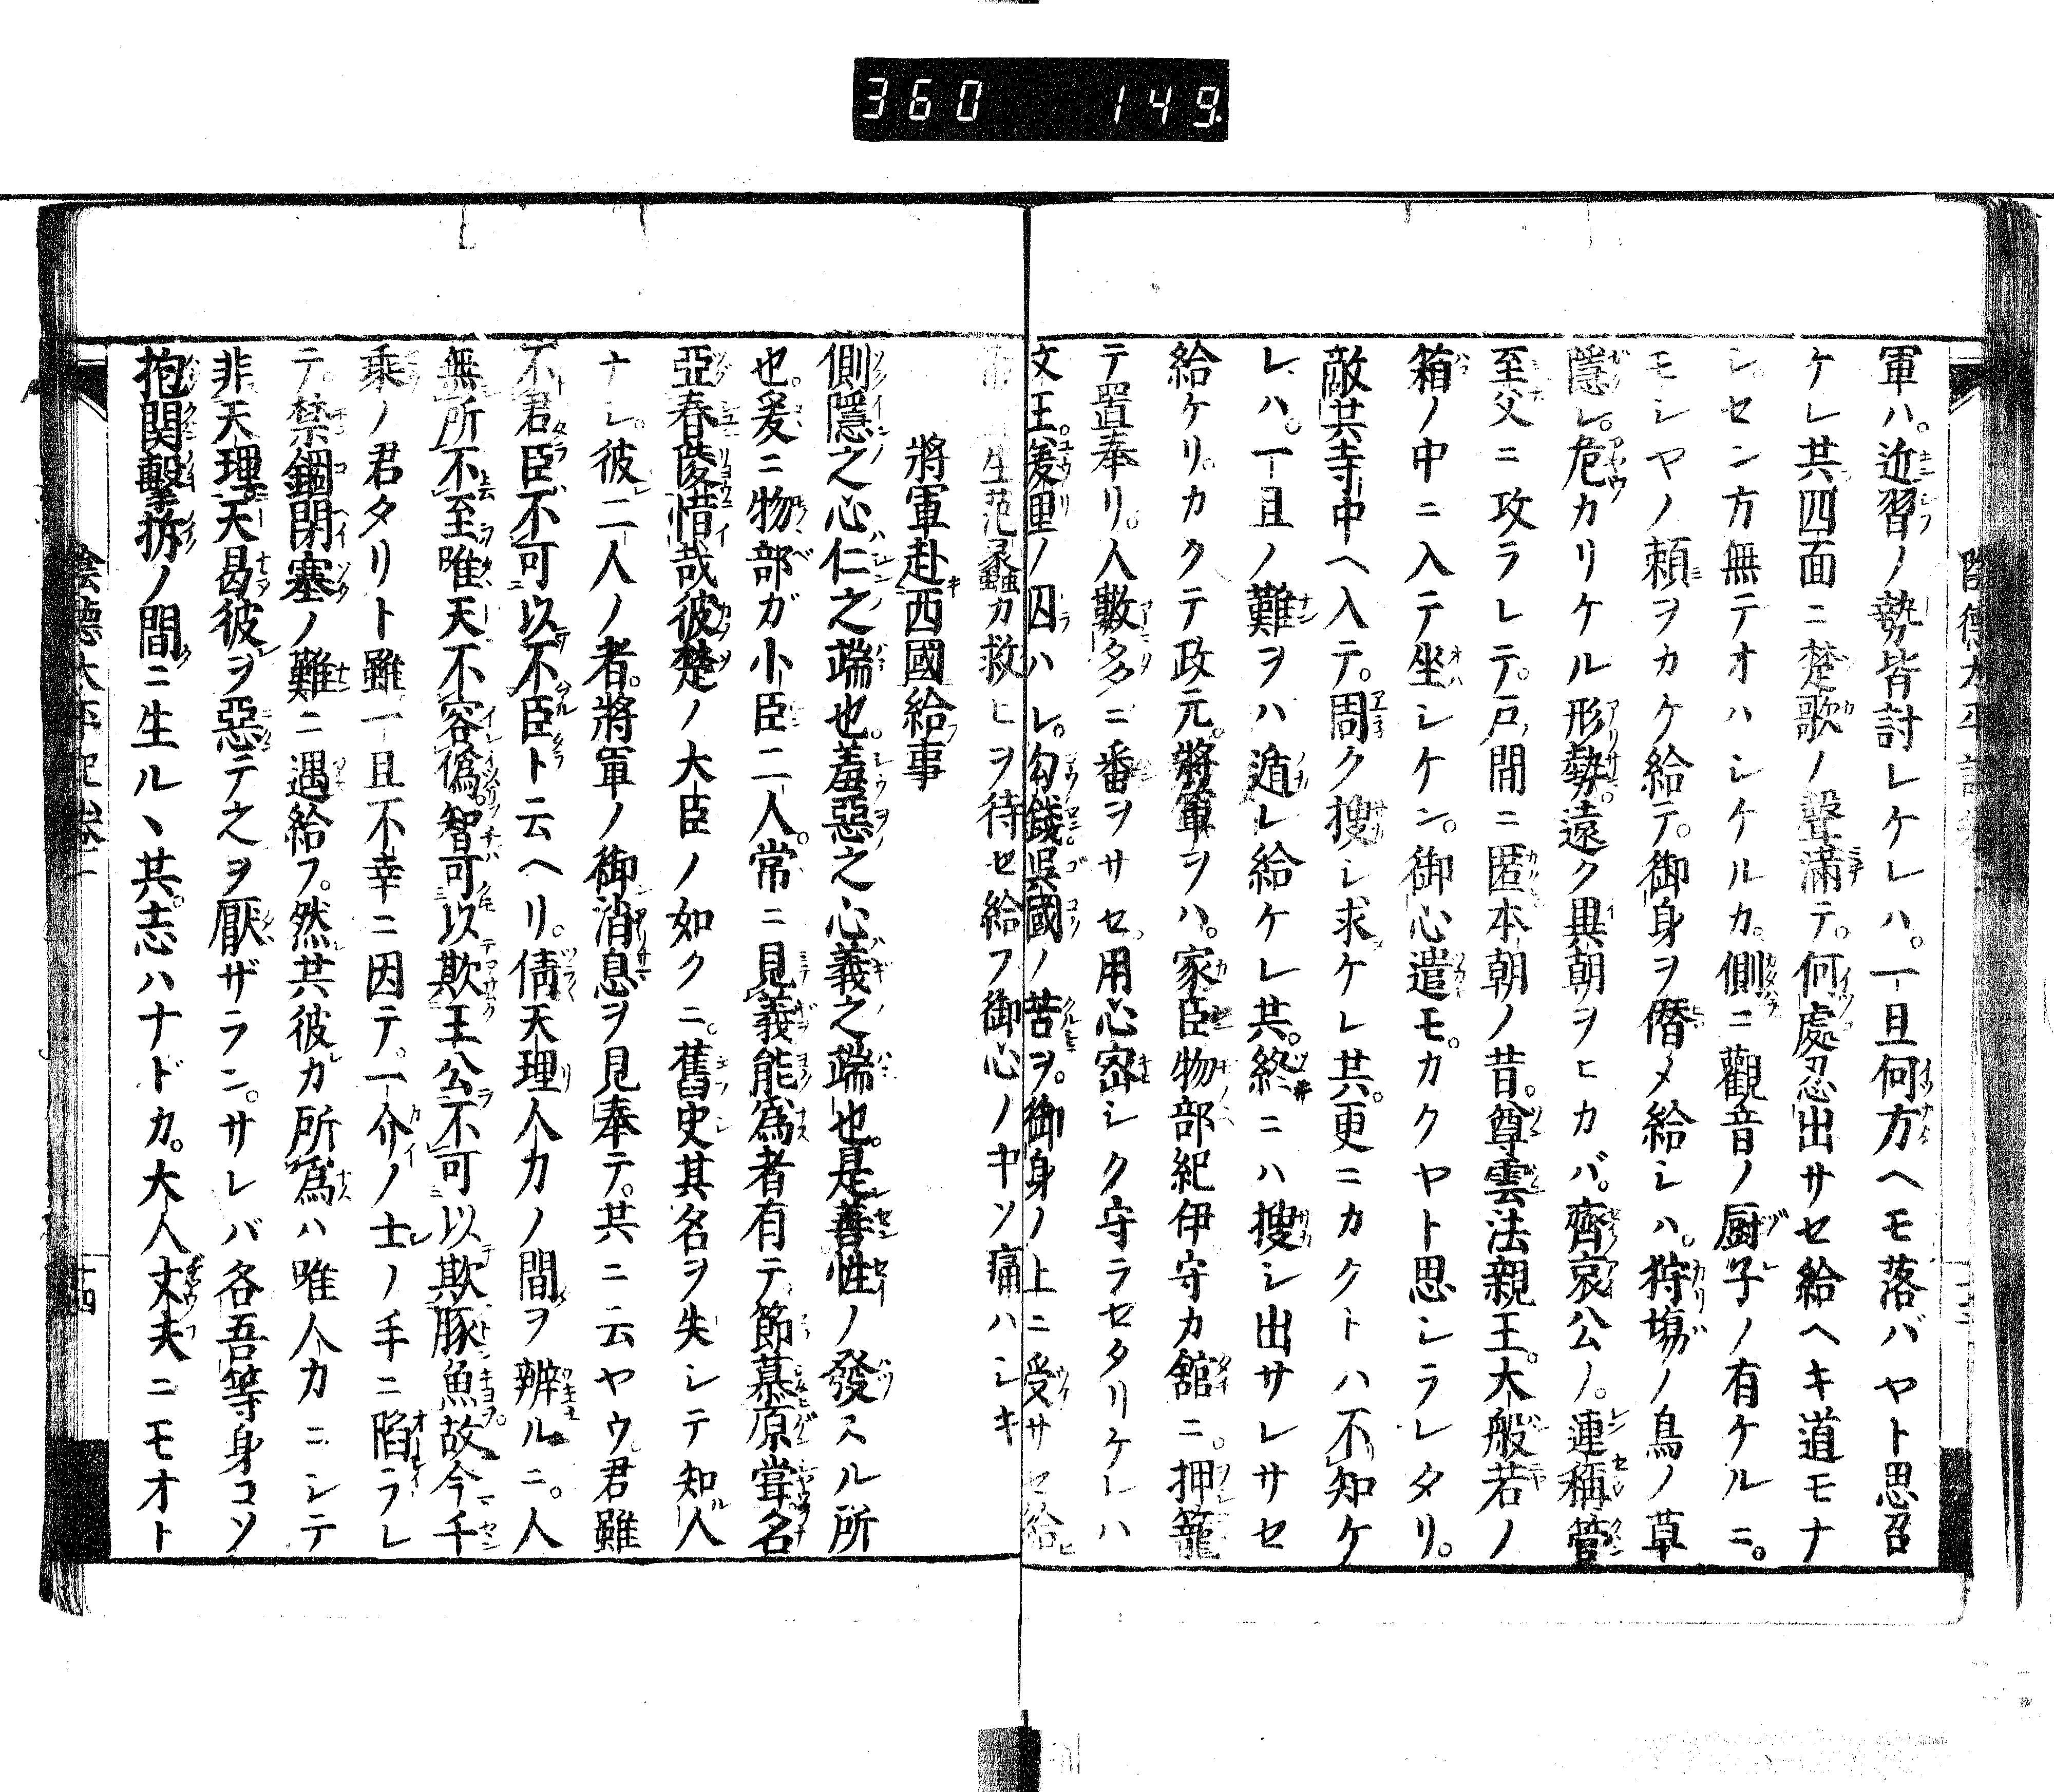 360 149.
陰徳太平記卷
軍ハ。近習ノ勢皆討レケレハ。一旦何方ヘモ落バヤト思召
ケレ共四面ニ楚歌ノ聲滿テ。何處忍出サセ給ヘキ道モナ
シセン方無テオハシケルカ。側ニ觀音ノ厨子ノ有ケルニ。
モシヤノ頼ヲカケ給テ。御身ヲ僭メ給シハ。狩塲ノ鳥ノ草
隱レ。危カリケル形勢。遠ク異朝ヲヒカバ。齊哀公ノ。連稱管
至父ニ攻ラレテ。戸間ニ匿本朝ノ昔。尊雲法親王。大般若ノ
箱ノ中ニ入テ坐シケン。御心遣モ。カクヤト思シラレタリ。
敵共寺中ヘ入テ。周ク搜シ求ケレ共。更ニカクトハ不知ケ
レハ。一且ノ難ヲハ遁レ給ケレ共。終ニハ搜シ出サレサセ
給ケリ。カクテ政元。將軍ヲハ。家臣物部紀伊守カ舘ニ。押籠
テ置奉リ。人數多ニ番ヲサセ。用心密シク守ラセタリケレハ
文王。羑里ノ囚ハレ。勾錢呉國ノ苦ヲ。御身ノ上ニ受サセ給
生范蠡カ救ヒヲ待セ給フ御心ノ中ソ痛ハシキ
將軍赴西國給事
側隱之心仁之端也。羞惡之心義之端也。是善性ノ發スル所
也。爰ニ物部ガ小臣二人。常ニ見義能爲者有テ。節慕原甞名
亞春陵惜哉彼楚ノ大臣ノ如クニ。舊史其名ヲ失シテ知人
ナレ彼二人ノ者。將軍ノ御消息ヲ見奉テ。共ニ云ヤウ。君雖
不君臣不可以不臣ト云ヘリ。倩天理人力ノ間ヲ辨ルニ。人
無所不至唯天不容僞。智可以欺王公不可以欺豚魚。故今千
乘ノ君タリト雖一且不幸ニ因テ。一介ノ士ノ手ニ陷ラレ
テ。禁錮閉塞ノ難ニ遇給フ。然共彼カ所爲ハ唯人力ニシテ
非天理。天曷彼ヲ惡テ之ヲ厭ザラン。サレバ各吾等身コソ
抱関擊柝ノ間ニ生ルヽ共。志ハナドカ。大人丈夫ニモオト
陰徳太平記卷一
十四